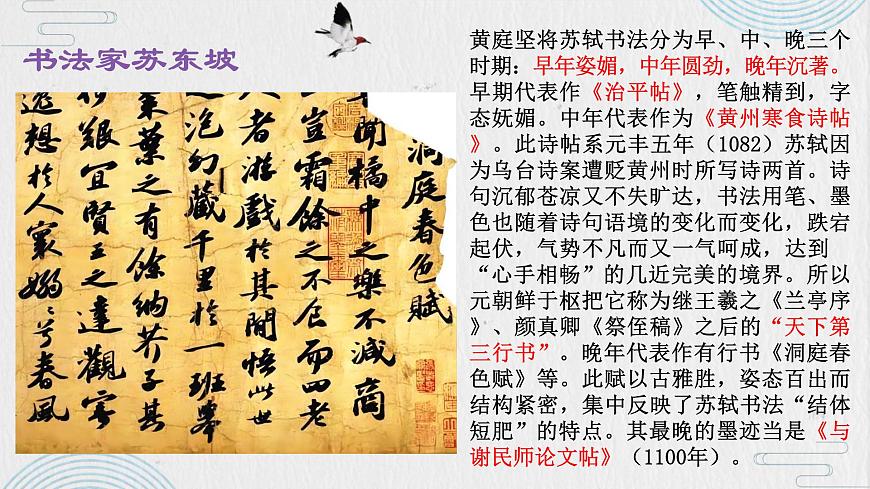 书法家苏东坡
洞庭春色賦
聞橘中之樂不減商
豈霜餘之不食而四老
人者游戲於其間悟此世
之泡幻藏千里於一班舉
棗葉之有餘納芥子其
何艱宜賢王之達觀寄
逸想於人寰嫋〻兮春風
黄庭坚将苏轼书法分为早、中、晚三个
时期：早年姿媚，中年圆劲，晚年沉著。
早期代表作《治平帖》，笔触精到，字
态妩媚。中年代表作为《黄州寒食诗帖
》。此诗帖系元丰五年（1082）苏轼因
为乌台诗案遭贬黄州时所写诗两首。诗
句沉郁苍凉又不失旷达，书法用笔、墨
色也随着诗句语境的变化而变化，跌宕
起伏，气势不凡而又一气呵成，达到
“心手相畅”的几近完美的境界。所以
元朝鲜于枢把它称为继王羲之《兰亭序
》、颜真卿《祭侄稿》之后的“天下第
三行书”。晚年代表作有行书《洞庭春
色赋》等。此赋以古雅胜，姿态百出而
结构紧密，集中反映了苏轼书法“结体
短肥”的特点。其最晚的墨迹当是《与
谢民师论文帖》（1100年）。